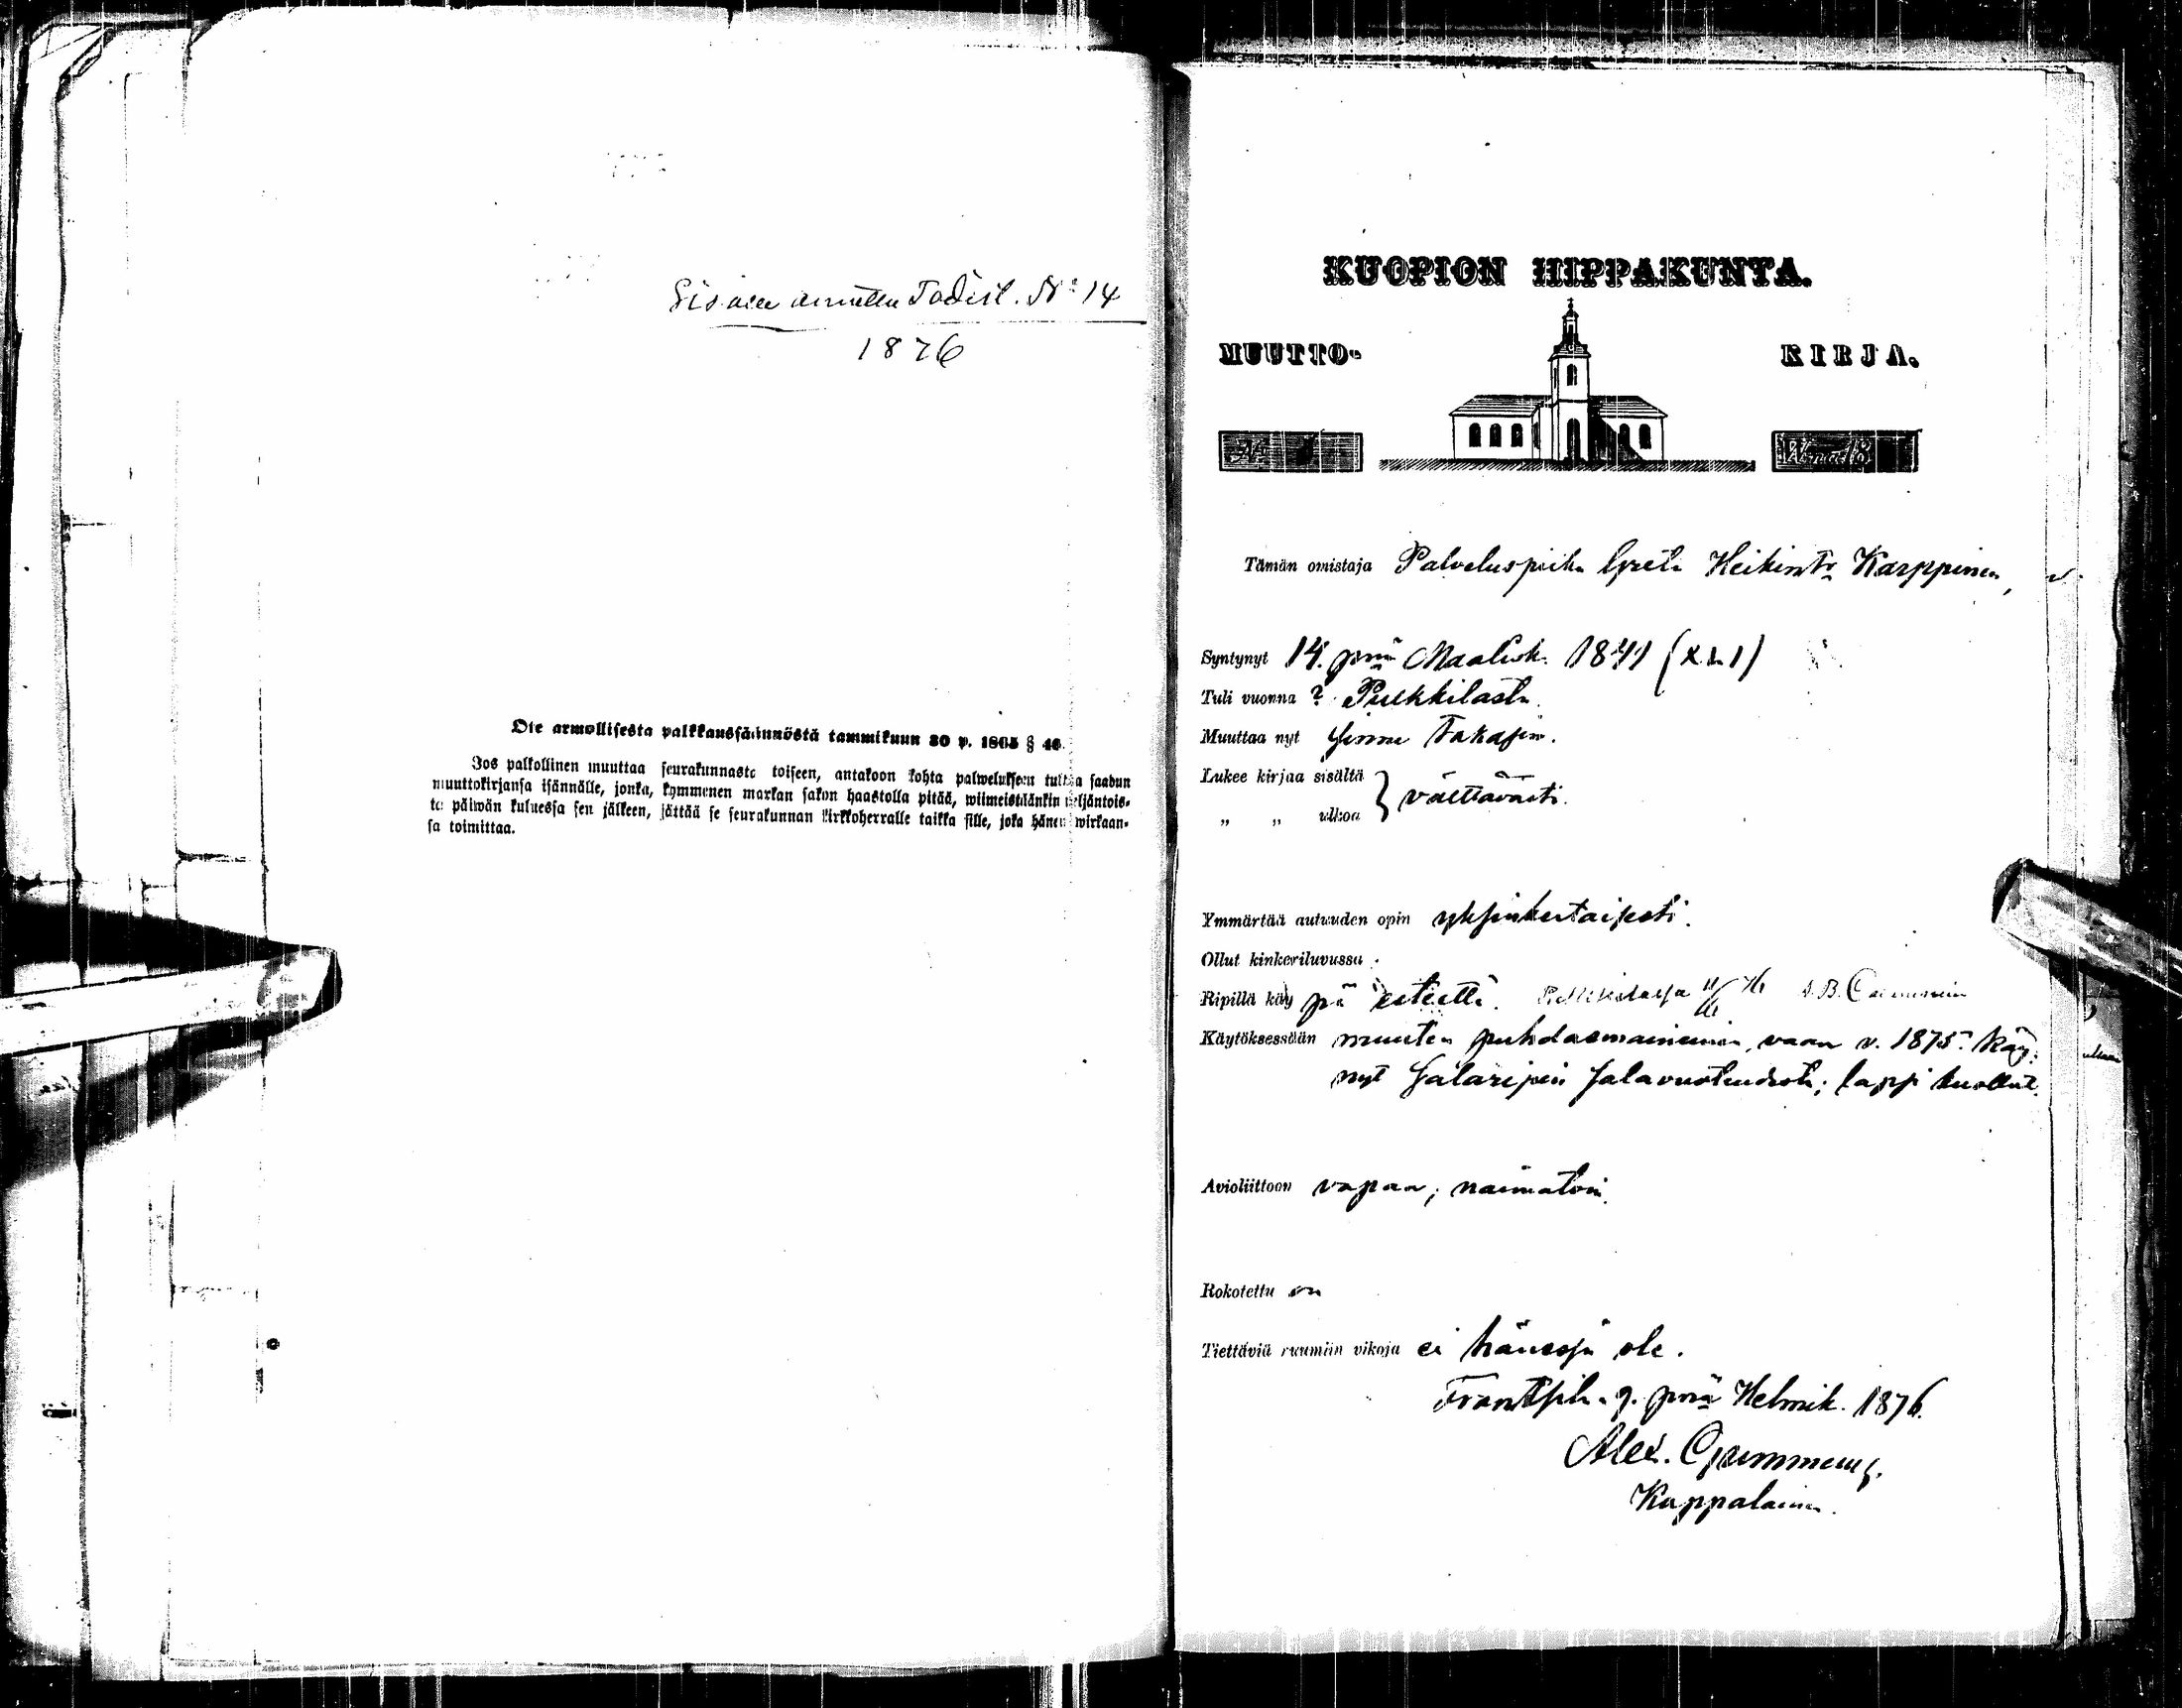 Sisään annettu Todist. No 14
1876
Ote armollisesta palkkaussäännöstä tammikuun 30 p. 1865 § 46.
Jos palkollinen muuttaa seurakunnasta toiseen, antakoon kohta palwelukseen tultua saadun
muuttokirjansa isännälle, jonka, kymmenen markan sakon haastolla pitää, wiimeistäänkin neljäntois-
ta päiwän kuluessa sen jälkeen, jättää se seurakunnan kirkkoherralle taikka sille, joka hänen wirkaan-
sa toimittaa.
KUOPION HIPPAKUNTA.
MUUTTO- KIRJA.
No Wna 18
Tämän omistaja Palveluspiika Greta Heikintr Karppinen,
Syntynyt 14. pnä Maalisk. 1841 (XLI)
Tuli vuonna ? Pulkkilasta.
Muuttaa nyt sinne takasin.
Lukee kirjaa sisältä } välttävästi.
„ „ ulkoa
Ymmärtää autuuden opin yksinkertaisesti.
Ollut kinkeriluvussa.
Ripillä käy pä esteettä. Pulkkilassa
Käytöksessään muuten puhdasmaineinen, vaan v. 1875 käy-
nyt salaripin salavuoteudesta; lapsi kuollut.
Avioliittoon vapaa; naimatoin.
Rokotettu on
Tiettäviä ruumiin vikoja ei hänessä ole.
Frantsila 9. pnä Helmik. 1876.
Alex. Gummerus.
Kappalainen.